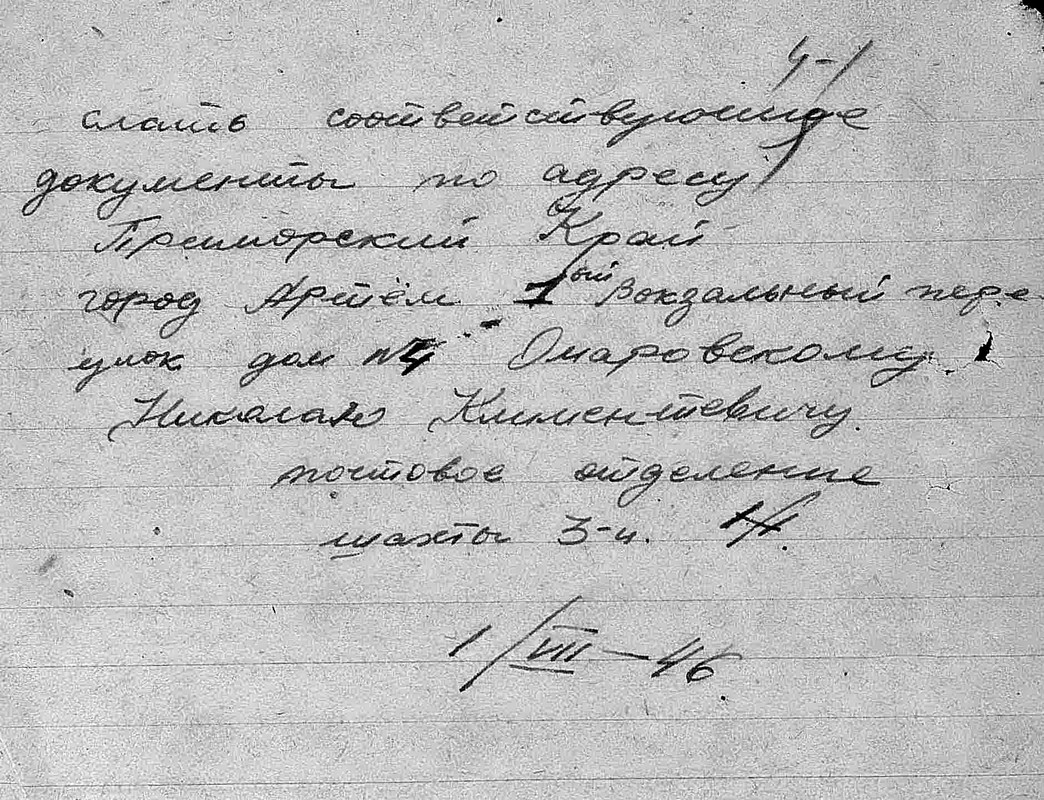 слать соответствующие
документы по адресу
Приморский Край
город Артём 1ый Вокзальный пере
улок дом №4 Омаровскому
Николаю Климентевичу.
почтовое отделение
шахты 3-ц.
1/VIII-46.